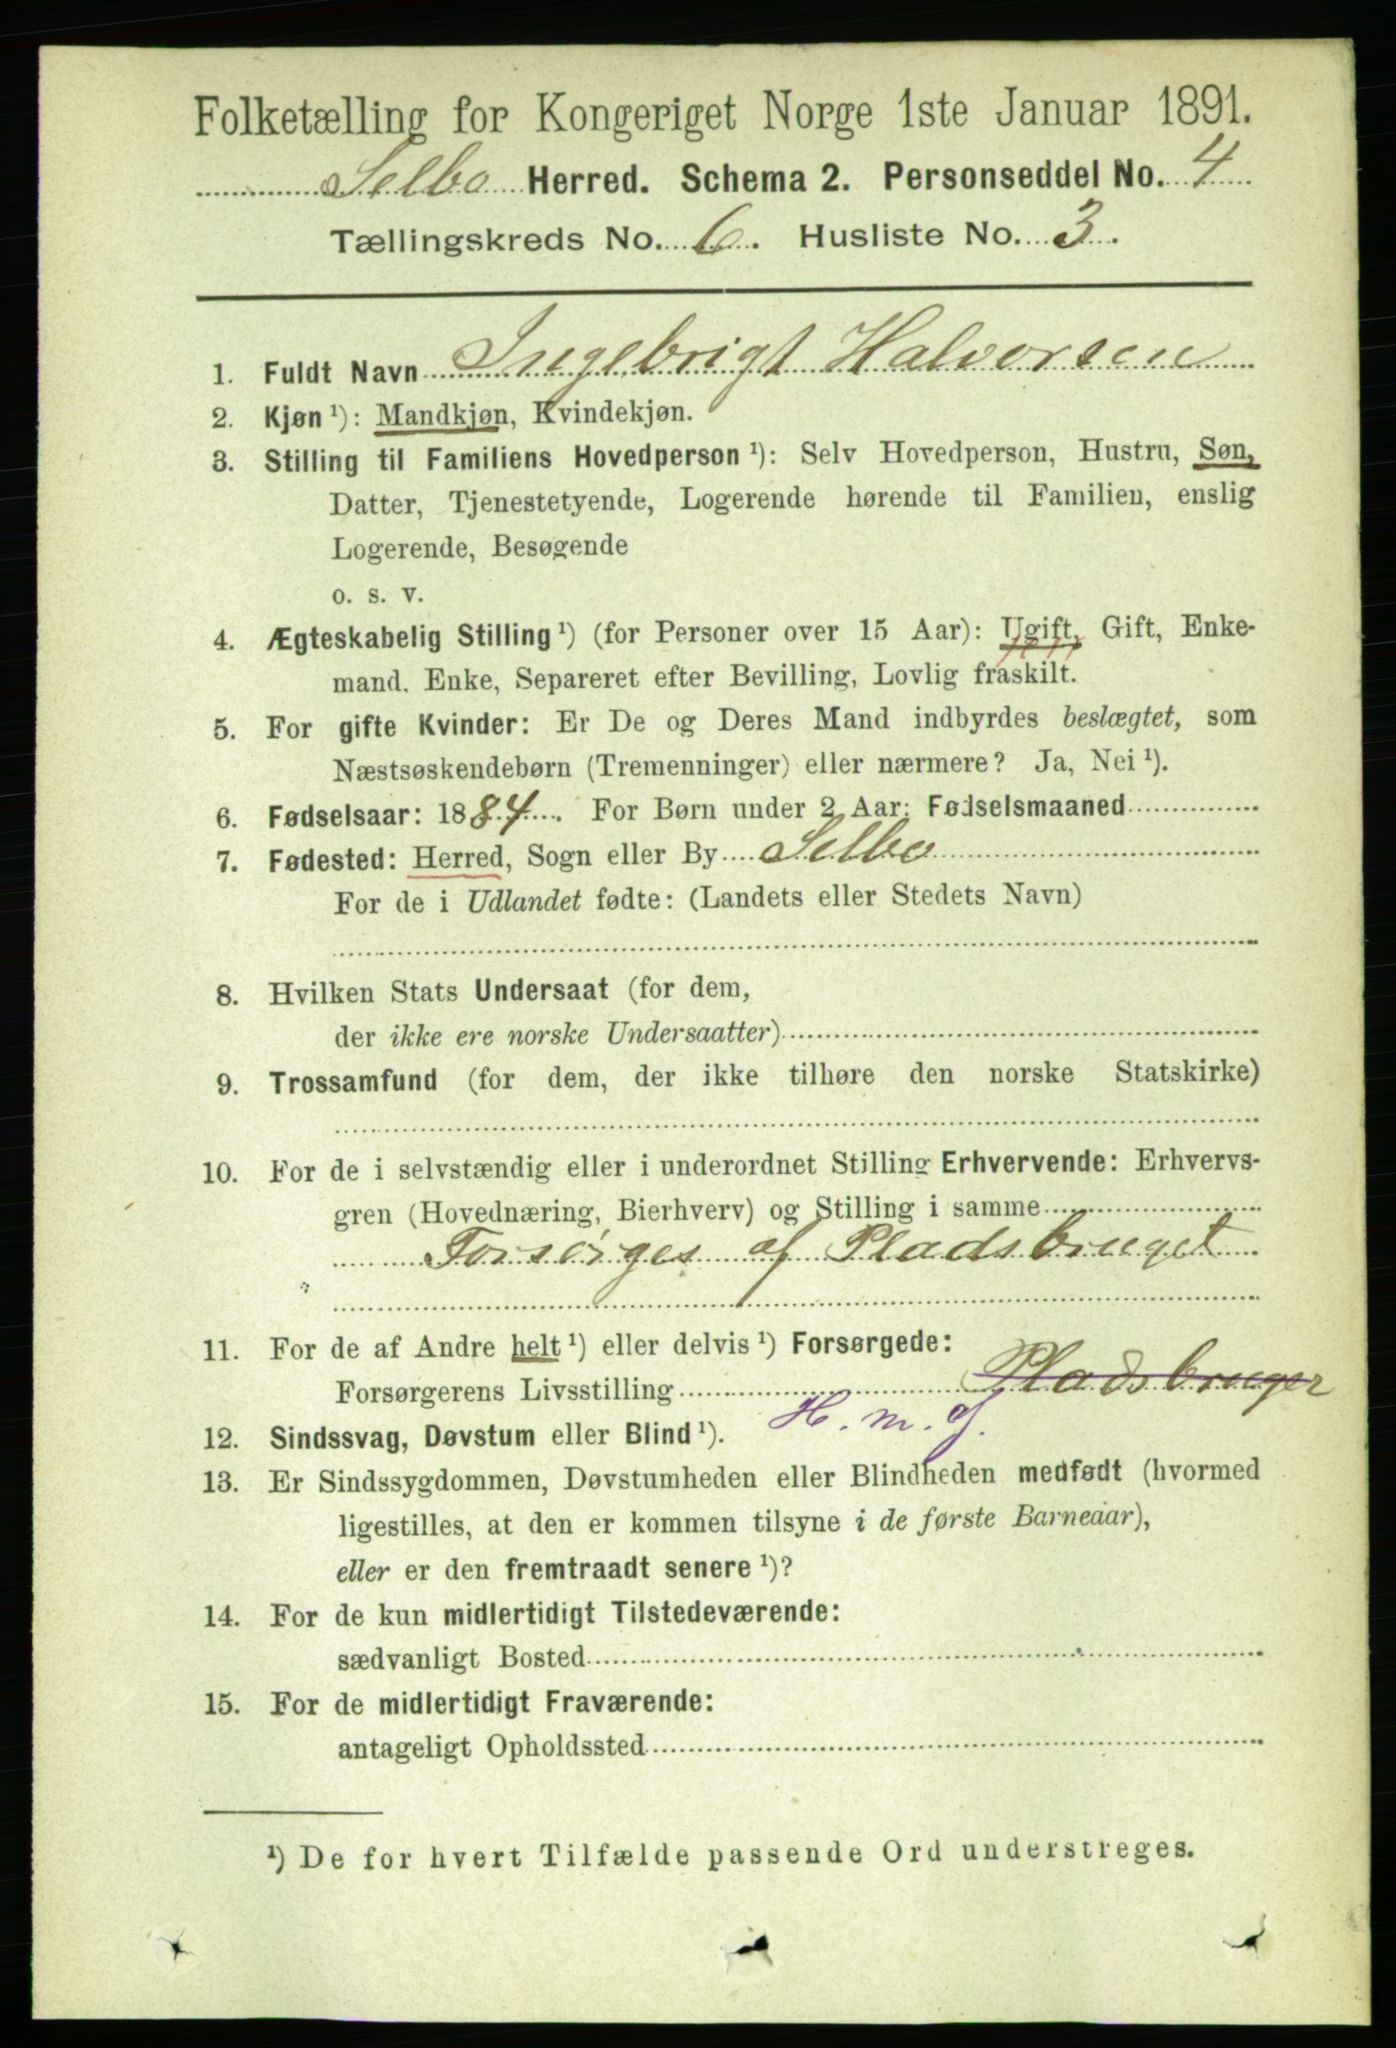 Folketælling for Kongeriget Norge 1ste Januar 1891.
Selbo Herred. Schema 2. Personseddel No. 4
Tællingskreds No. 6. Husliste No. 3.
1. Fuldt Navn Ingebrigt Halvorsen
2. Kjøn ¹): Mandkjøn, Kvindekjøn.
3. Stilling til Familiens Hovedperson ¹): Selv Hovedperson, Hustru, Søn,
Datter, Tjenestetyende, Logerende hørende til Familien, enslig
Logerende, Besøgende
o. s. v.
4. Ægteskabelig Stilling ¹) (for Personer over 15 Aar): Ugift, Gift, Enke-
mand, Enke, Separeret efter Bevilling, Lovlig fraskilt.
5. For gifte Kvinder: Er De og Deres Mand indbyrdes beslægtet, som
Næstsøskendebørn (Tremenninger) eller nærmere? Ja, Nei ¹).
6. Fødselsaar: 1884. For Børn under 2 Aar: Fødselsmaaned
7. Fødested: Herred, Sogn eller By Selbo
For de i Udlandet fødte: (Landets eller Stedets Navn)
8. Hvilken Stats Undersaat (for dem,
der ikke ere norske Undersaatter)
9. Trossamfund (for dem, der ikke tilhøre den norske Statskirke)
10. For de i selvstændig eller i underordnet Stilling Erhvervende: Erhvervs-
gren (Hovednæring, Bierhverv) og Stilling i samme
Forsørges af Pladsbruget
11. For de af Andre helt ¹) eller delvis ¹) Forsørgede:
Forsørgerens Livsstilling Pladsbruger
12. Sindssvag, Døvstum eller Blind ¹). H. m. J.
13. Er Sindssygdommen, Døvstumheden eller Blindheden medfødt (hvormed
ligestilles, at den er kommen tilsyne i de første Barneaar),
eller er den fremtraadt senere ¹)?
14. For de kun midlertidigt Tilstedeværende:
sædvanligt Bosted
15. For de midlertidigt Fraværende:
antageligt Opholdssted
¹) De for hvert Tilfælde passende Ord understreges.